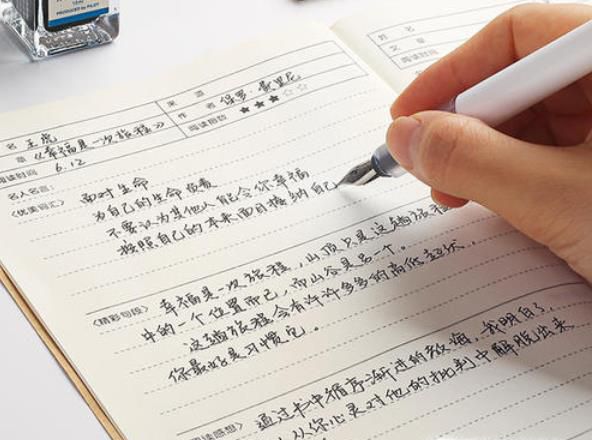 15ml
PRODUCED by PILOT
姓 名
文 章
阅读时间
来 源
名 王虎
作 者 保罗·费里尼
章 《幸福是一次旅程》
阅读指数 ★★★☆☆
阅读时间 6.12
名人名言：
面对生命
〈优美词汇〉 为自己的生命负责
不要认为其他人能令你幸福
按照自己的本来面目接纳自己
〈精彩句段〉 幸福是一次旅程，山顶只是这趟旅程
中的一个位置而已，而山谷是另一个。
这趟旅程会有许许多多的高低起伏，
你最好是习惯它。
阅读感想〉 通过书中循序渐进的教诲，我明白了，
从你心灵对他的批判中解脱出来